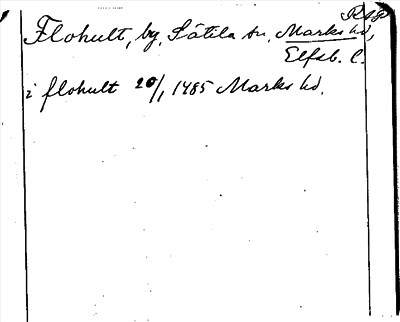 Flohult, by, Sätila sn, Marks hd,
Elfsb. l.
i flohult 20/1 1485 Marks hd.